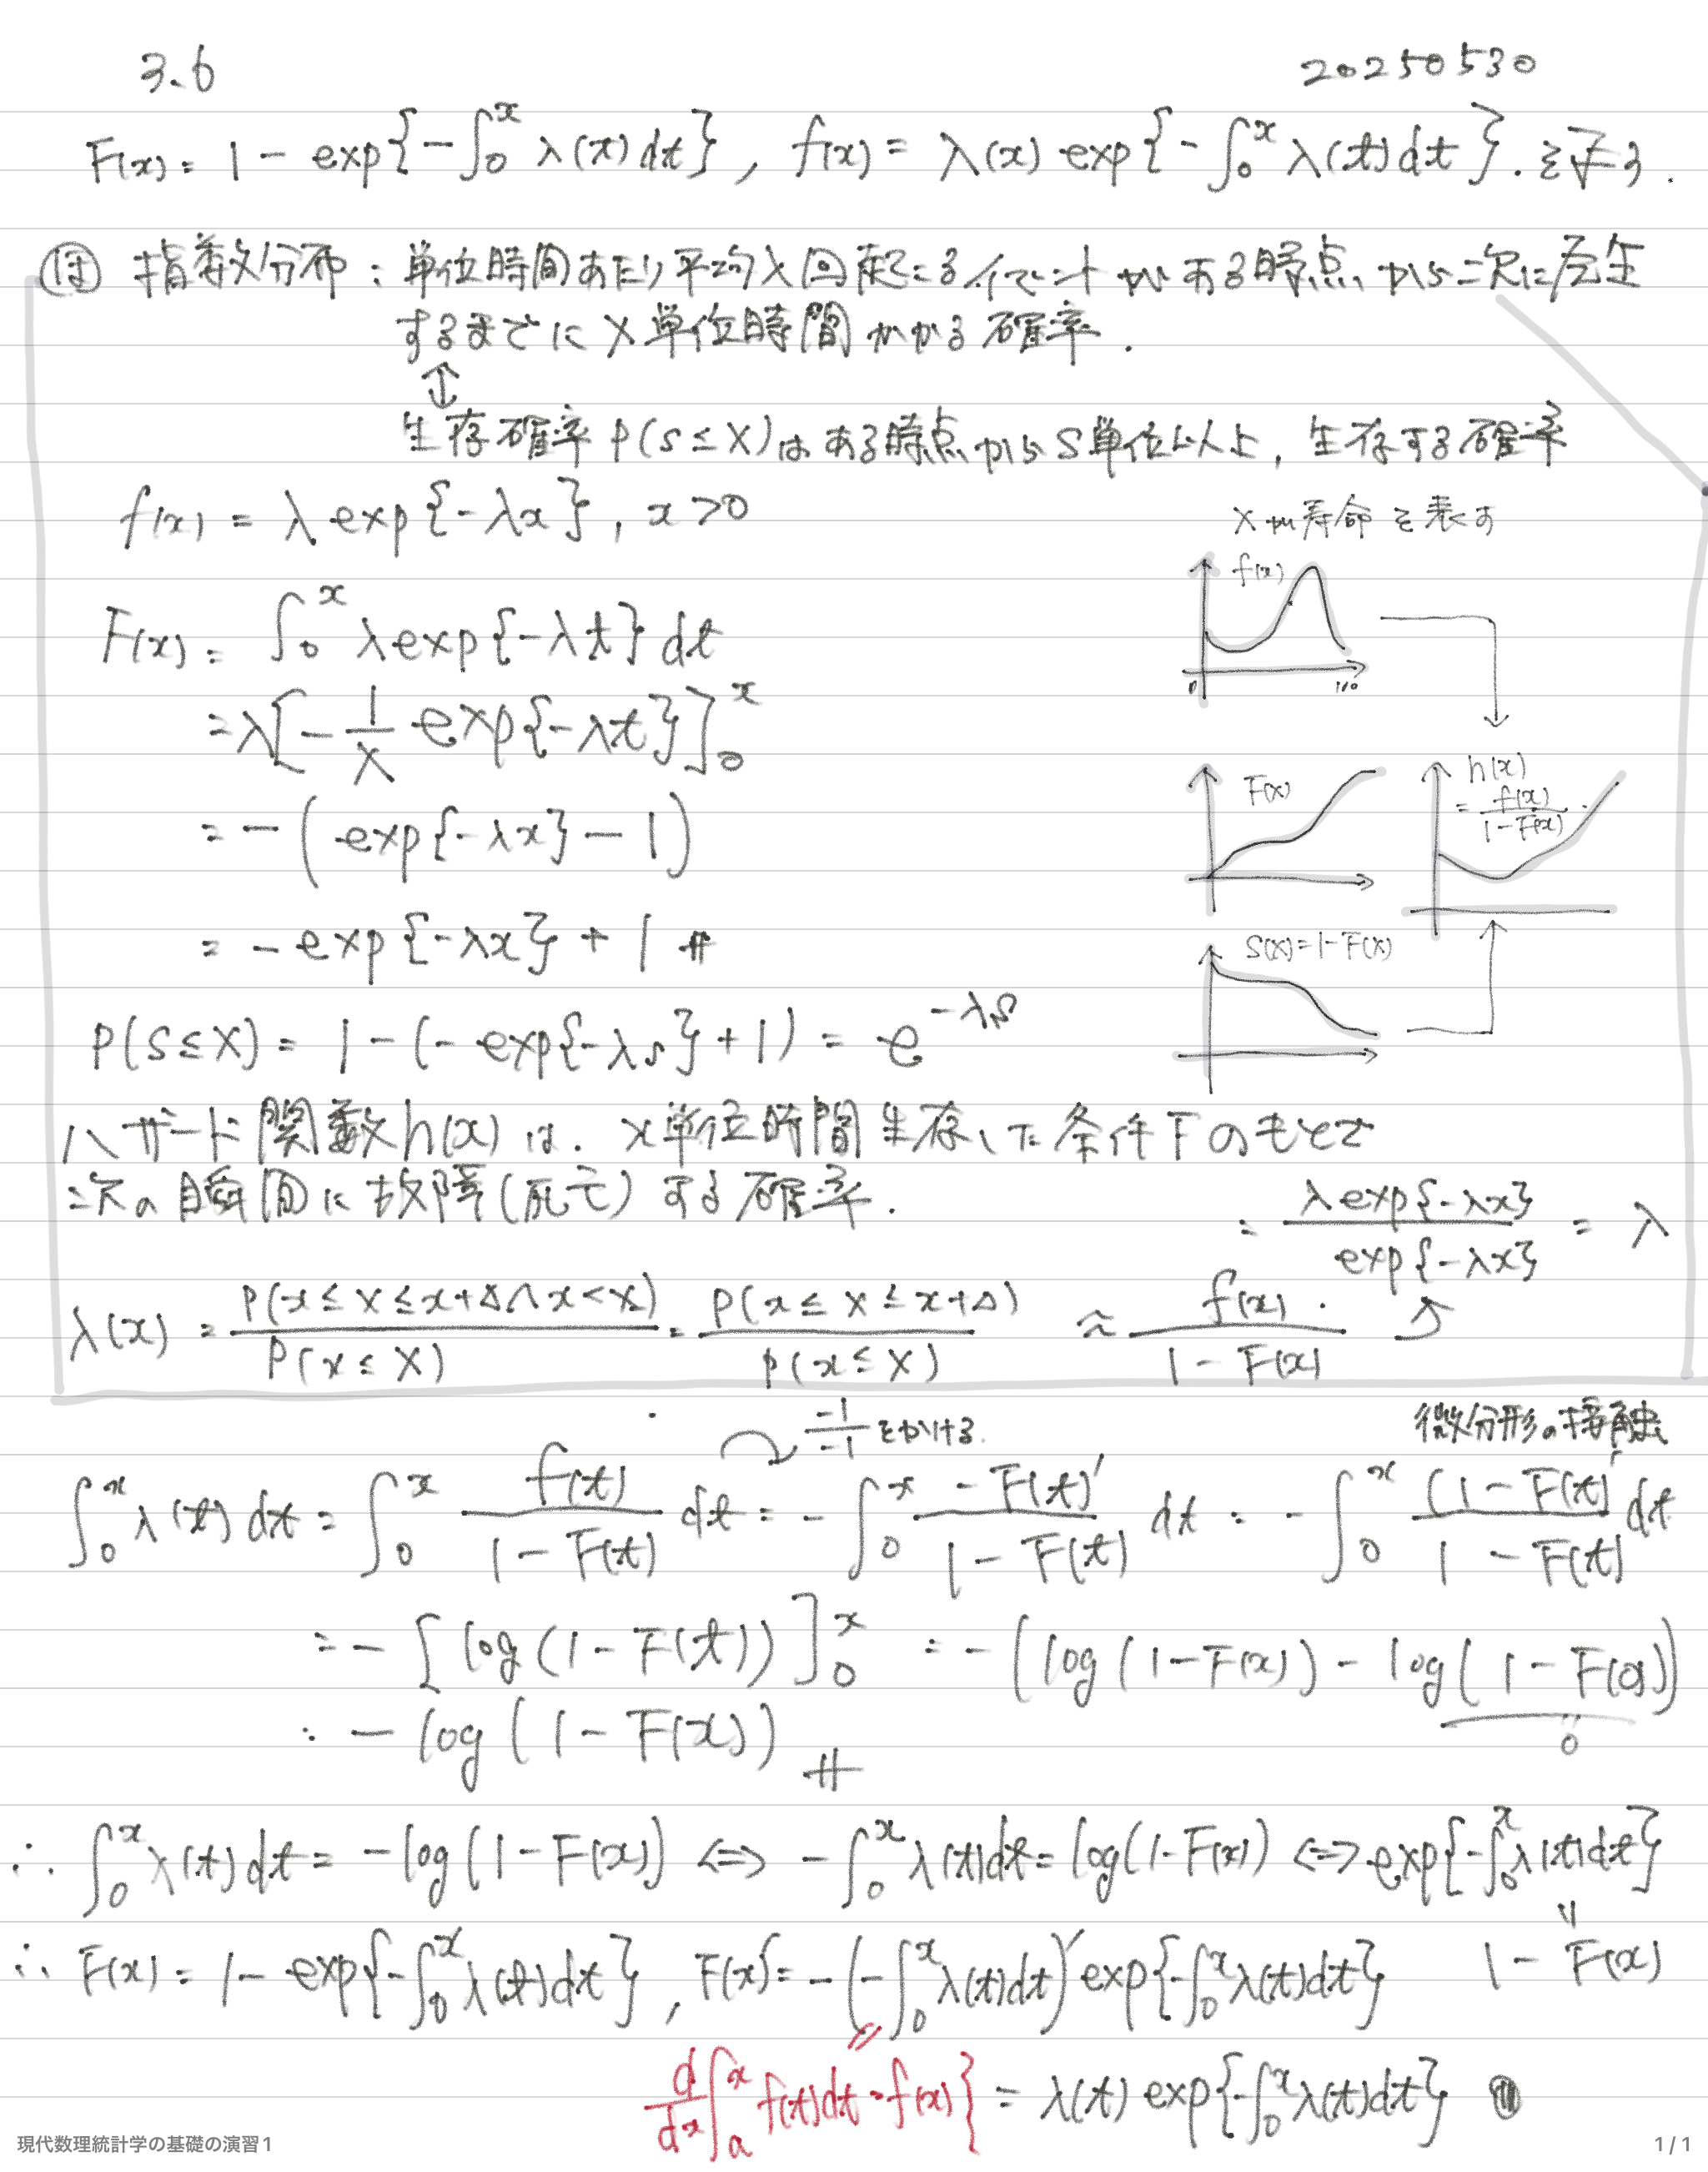 3.6
20250530
F(x) = 1 - exp{-∫₀ˣ λ(t) dt}, f(x) = λ(x) exp{-∫₀ˣ λ(t) dt}. を示す.
指数分布: 単位時間あたり平均λ回起こるイベントがある時点から次に発生
するまでにX単位時間かかる確率.
↕
生存確率 P(s≤X) は ある時点から s単位以上, 生存する確率
f(x) = λ exp{-λx}, x>0
Xが寿命を表す
f(x)
0
100
F(x) = ∫₀ˣ λ exp{-λt} dt
= λ[-1/λ exp{-λt}]₀ˣ
F(x)
h(x)
= f(x)/(1-F(x))
= -(exp{-λx} - 1)
= -exp{-λx} + 1 #
S(x)=1-F(x)
P(s≤X) = 1-(-exp{-λs}+1) = e^{-λs}
ハザード関数h(x)は. x単位時間生存した条件下のもとで
次の瞬間に故障(死亡)する確率.
= λexp{-λx}/exp{-λx} = λ
λ(x) = P(x≤X≤x+Δ∧x<X)/P(x≤X) = P(x≤X≤x+Δ)/P(x≤X) ≈ f(x)/(1-F(x))
-1/-1 をかける.
微分形の接触
∫₀ˣ λ(t) dt = ∫₀ˣ f(t)/(1-F(t)) dt = -∫₀ˣ -F(t)'/(1-F(t)) dt = -∫₀ˣ (1-F(t)'/(1-F(t) dt
= -[log(1-F(t))]₀ˣ = -(log(1-F(x)) - log(1-F(0)))
0
= -log(1-F(x)) #
∴ ∫₀ˣ λ(t) dt = -log(1-F(x)) ⇔ -∫₀ˣ λ(t)dt = log(1-F(x)) ⇔ exp{-∫₀ˣ λ(t)dt}
=
1-F(x)
∴ F(x) = 1-exp{-∫₀ˣ λ(t)dt}, F(x)' = -(-∫₀ˣ λ(t)dt)' exp{-∫₀ˣ λ(t)dt}
d/dx ∫ₐˣ f(t)dt = f(x)} = λ(t) exp{-∫₀ˣ λ(t)dt}
現代数理統計学の基礎の演習1
1 / 1